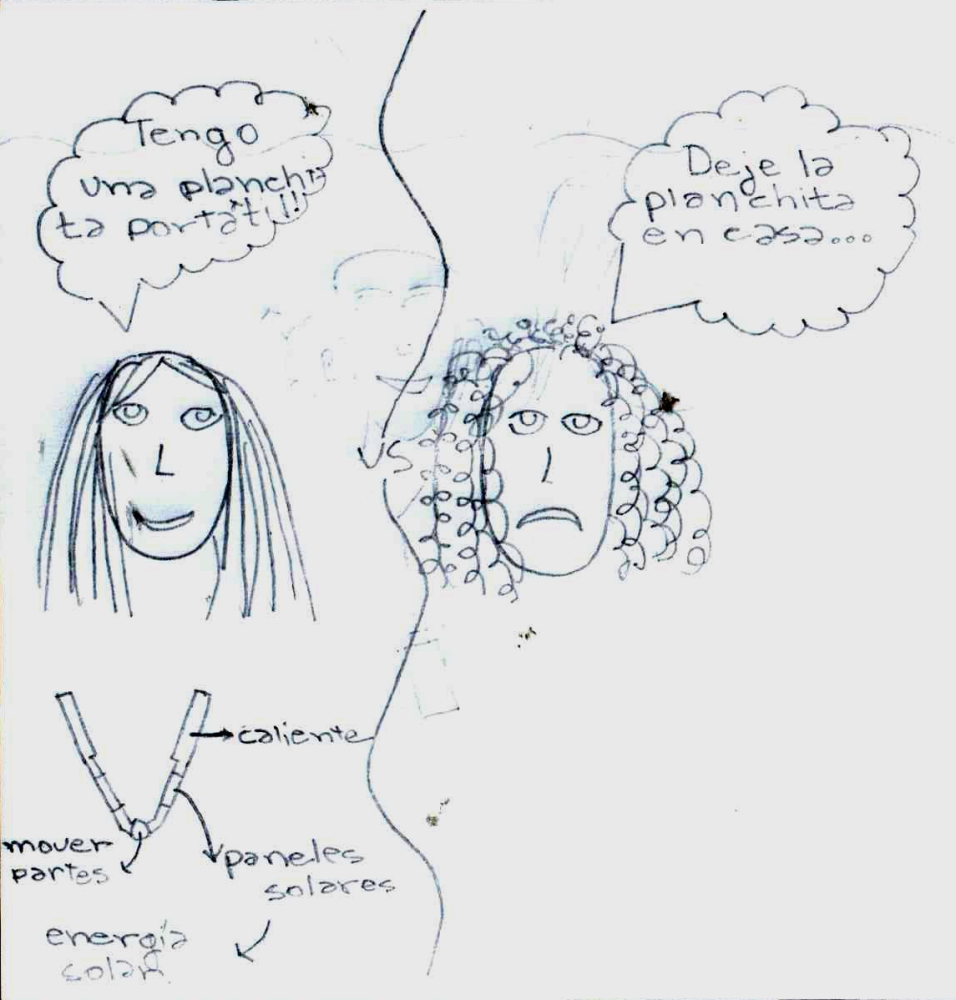 Tengo
una planchi
ta portátil!!
Deje la
planchita
en casa...
VS
caliente
mover
partes
paneles
solares
energía
solar